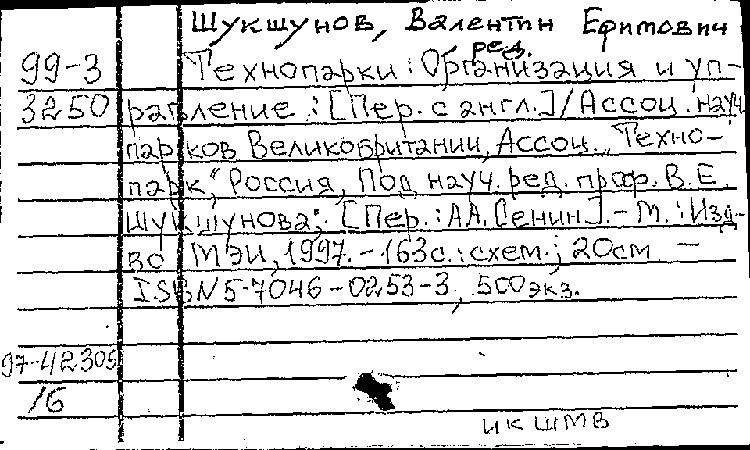 Шукшунов, Валентин Ефимович
ред.
99-3 Технопарки: Организация и уп-
3250 равление: [Пер. с англ.] / Ассоц. науч.
парков Великобритании, Ассоц. „Техно-
парк", Россия, Под науч. ред. проф. В.Е.
Шукшунова; [Пер.: А.А. Сенин]. - М.: Изд-
во МЭИ, 1997. - 163с.: схем.; 20см —
ISBN 5-7046-0253-3, 500экз.
97-42305
/б
ИКШМВ